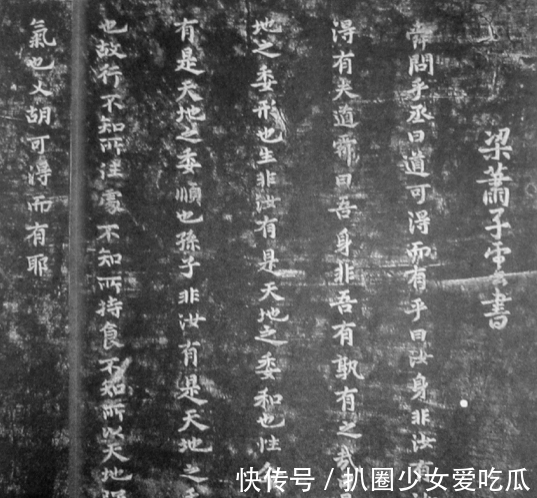 梁蕭子雲書
舜問乎丞曰道可得而有乎曰汝身非汝有
得有夫道舜曰吾身非吾有孰有之哉
地之委形也生非汝有是天地之委和也性
有是天地之委順也孫子非汝有是天地之委
也故行不知所往處不知所持食不知所以天地
氣也又胡可得而有耶
快传号 / 扒圈少女爱吃瓜